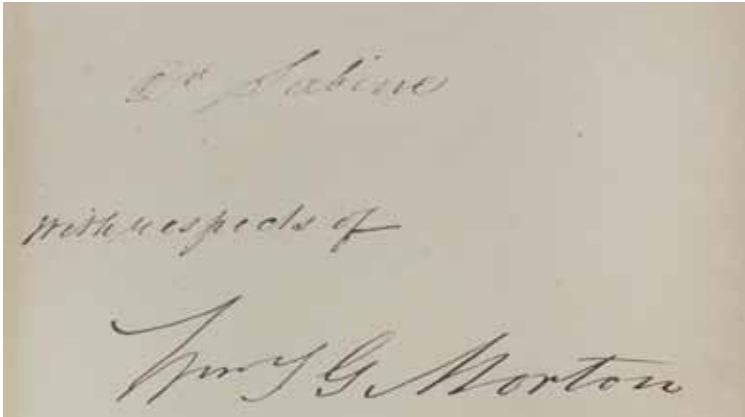 Dr Sabine
with respects of
Wm T G Morton